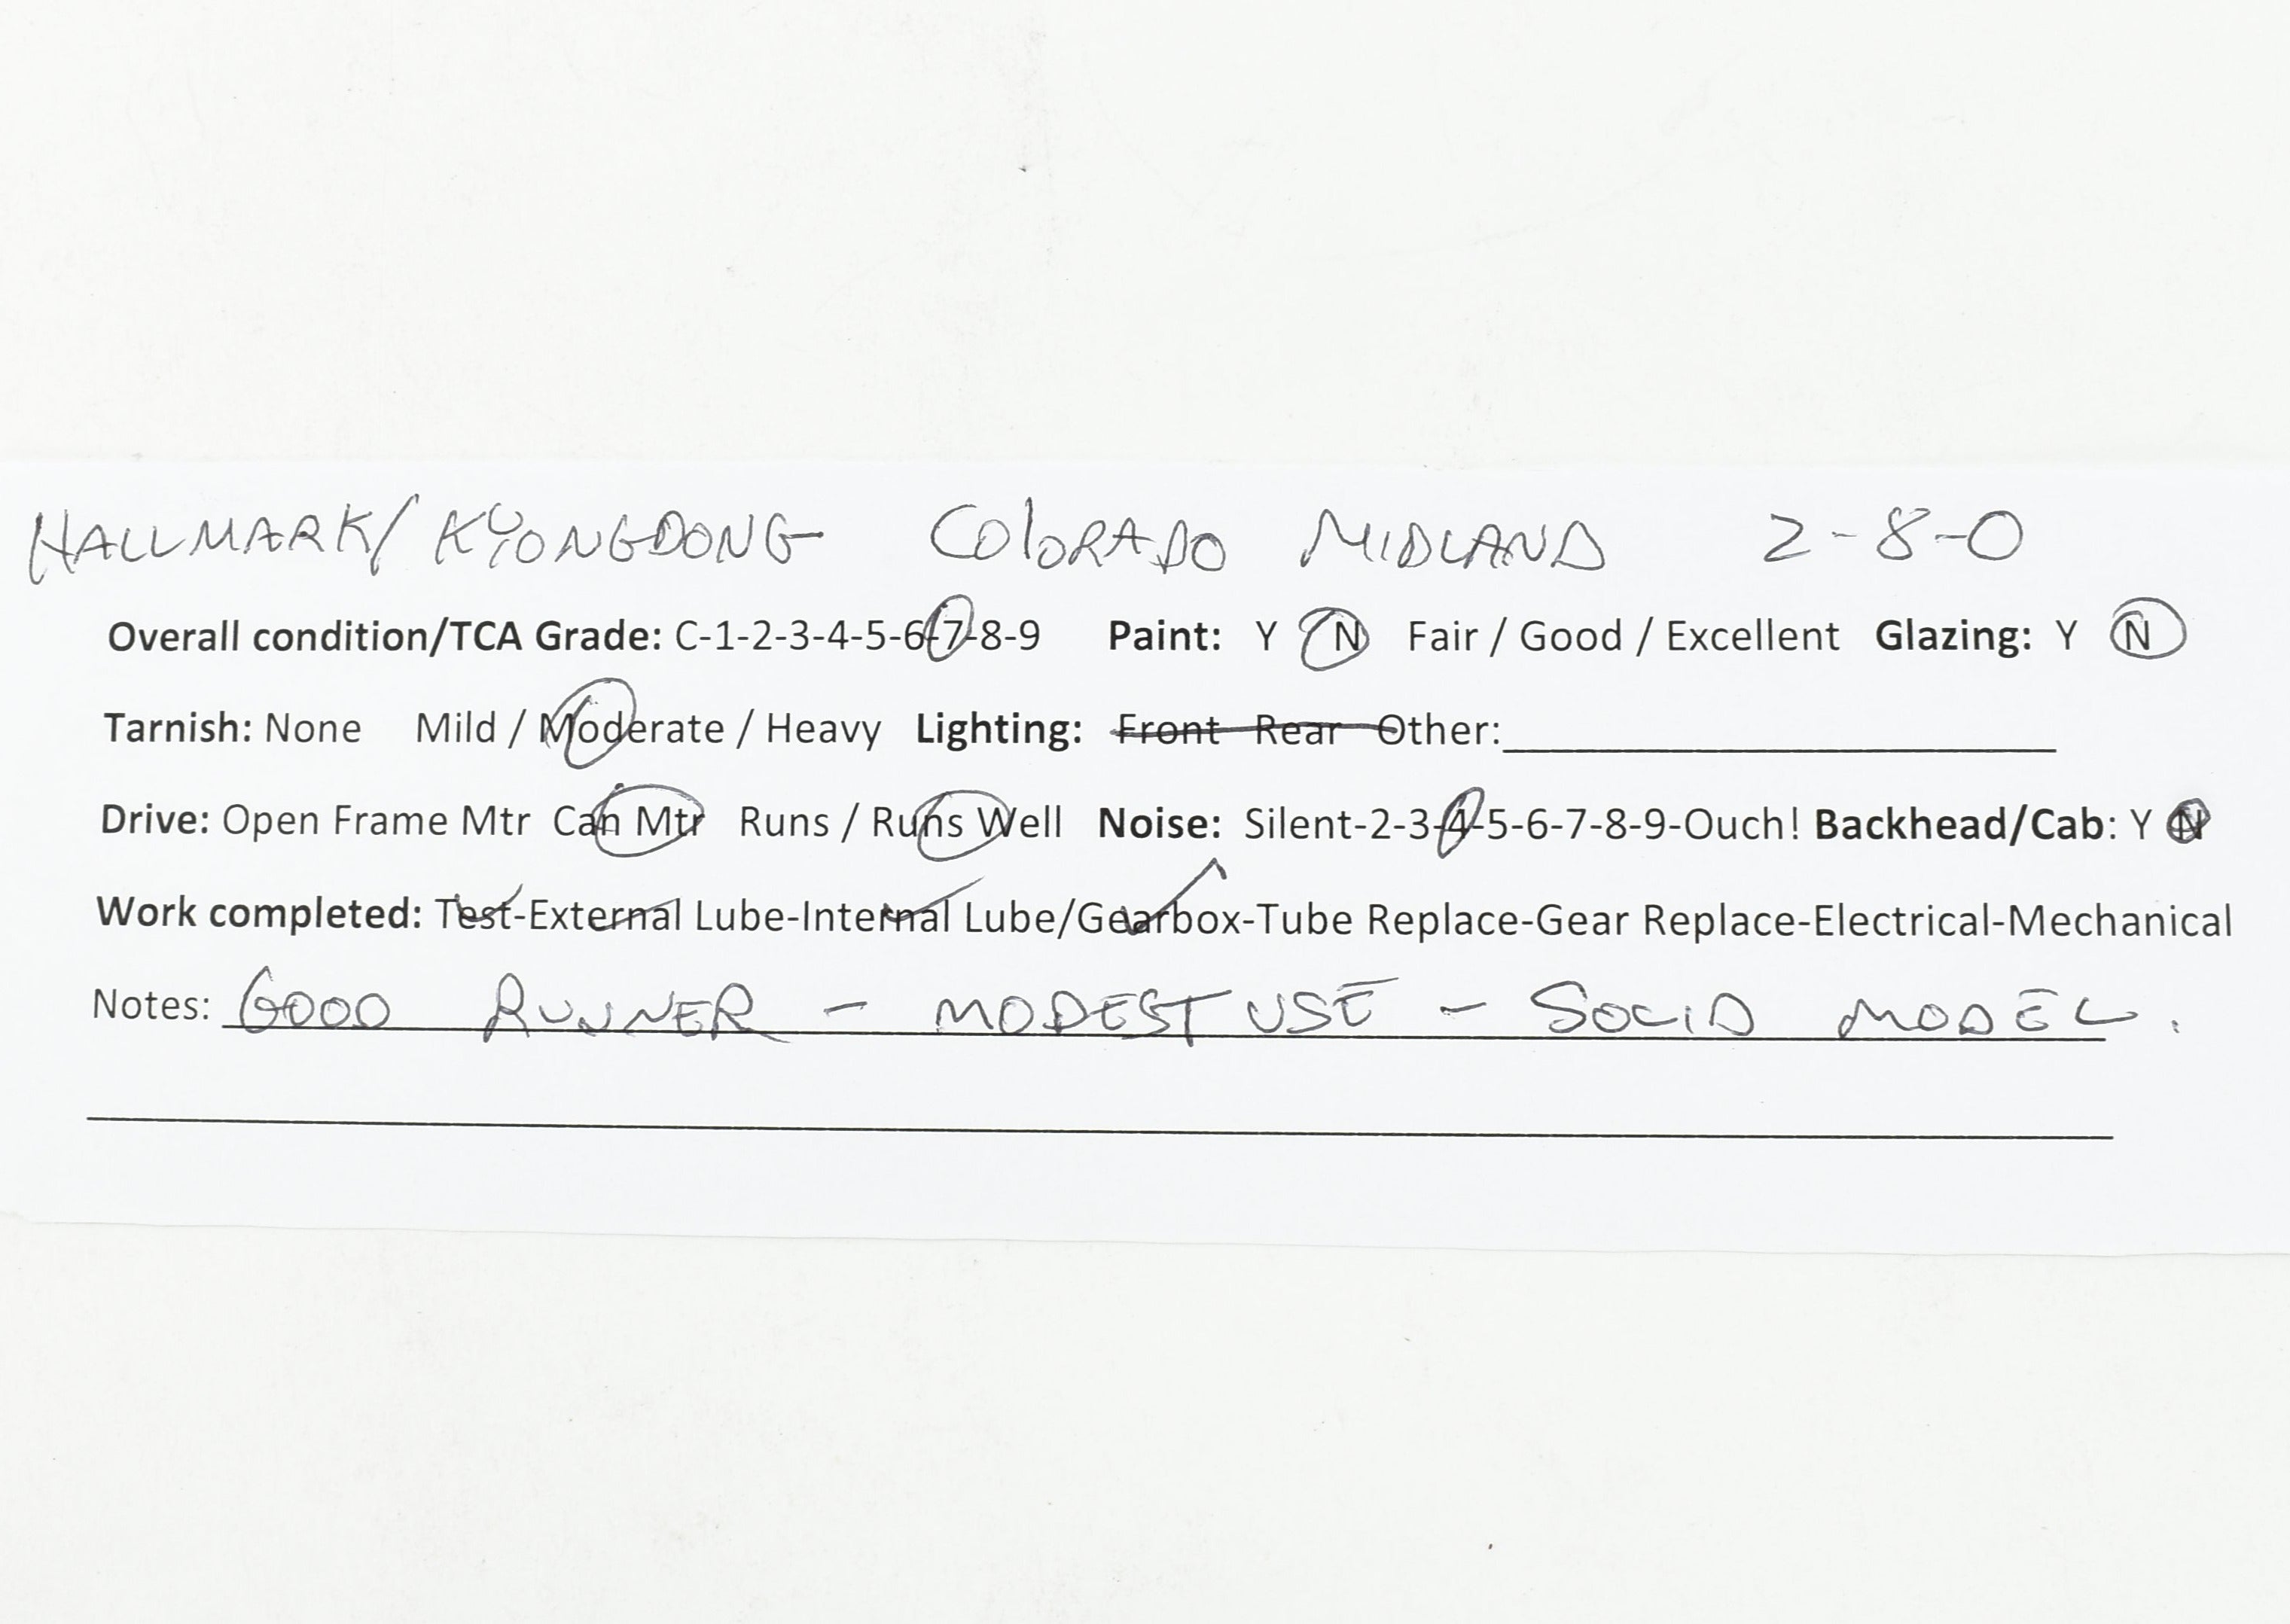 HALLMARK/ KYONGDONG COLORADO MIDLAND 2-8-0
Overall condition/TCA Grade: C-1-2-3-4-5-6-7-8-9 Paint: Y N Fair / Good / Excellent Glazing: Y N
Tarnish: None Mild / Moderate / Heavy Lighting: Front Rear Other:
Drive: Open Frame Mtr Can Mtr Runs / Runs Well Noise: Silent-2-3-4-5-6-7-8-9-Ouch! Backhead/Cab: Y N
Work completed: Test-External Lube-Internal Lube/Gearbox-Tube Replace-Gear Replace-Electrical-Mechanical
Notes: GOOD RUNNER - MODEST USE - SOLID MODEL.